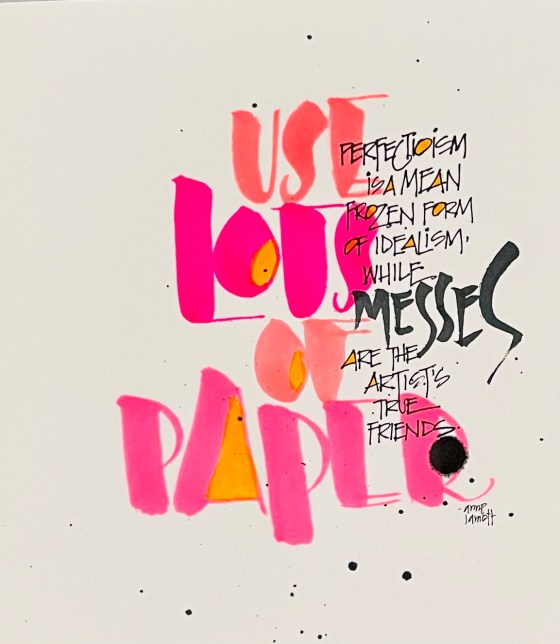 USE
LOTS
OF
PAPER
PERFECTIOISM
IS A MEAN
FROZEN FORM
OF IDEALISM,
WHILE
MESSES
ARE THE
ARTIST'S
TRUE
FRIENDS.
-anne
lamott